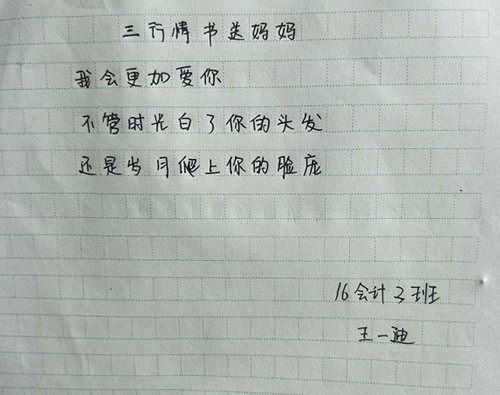 三行情书送妈妈
我会更加爱你
不管时光白了你的头发
还是岁月爬上你的脸庞
16会计3班
王一迪